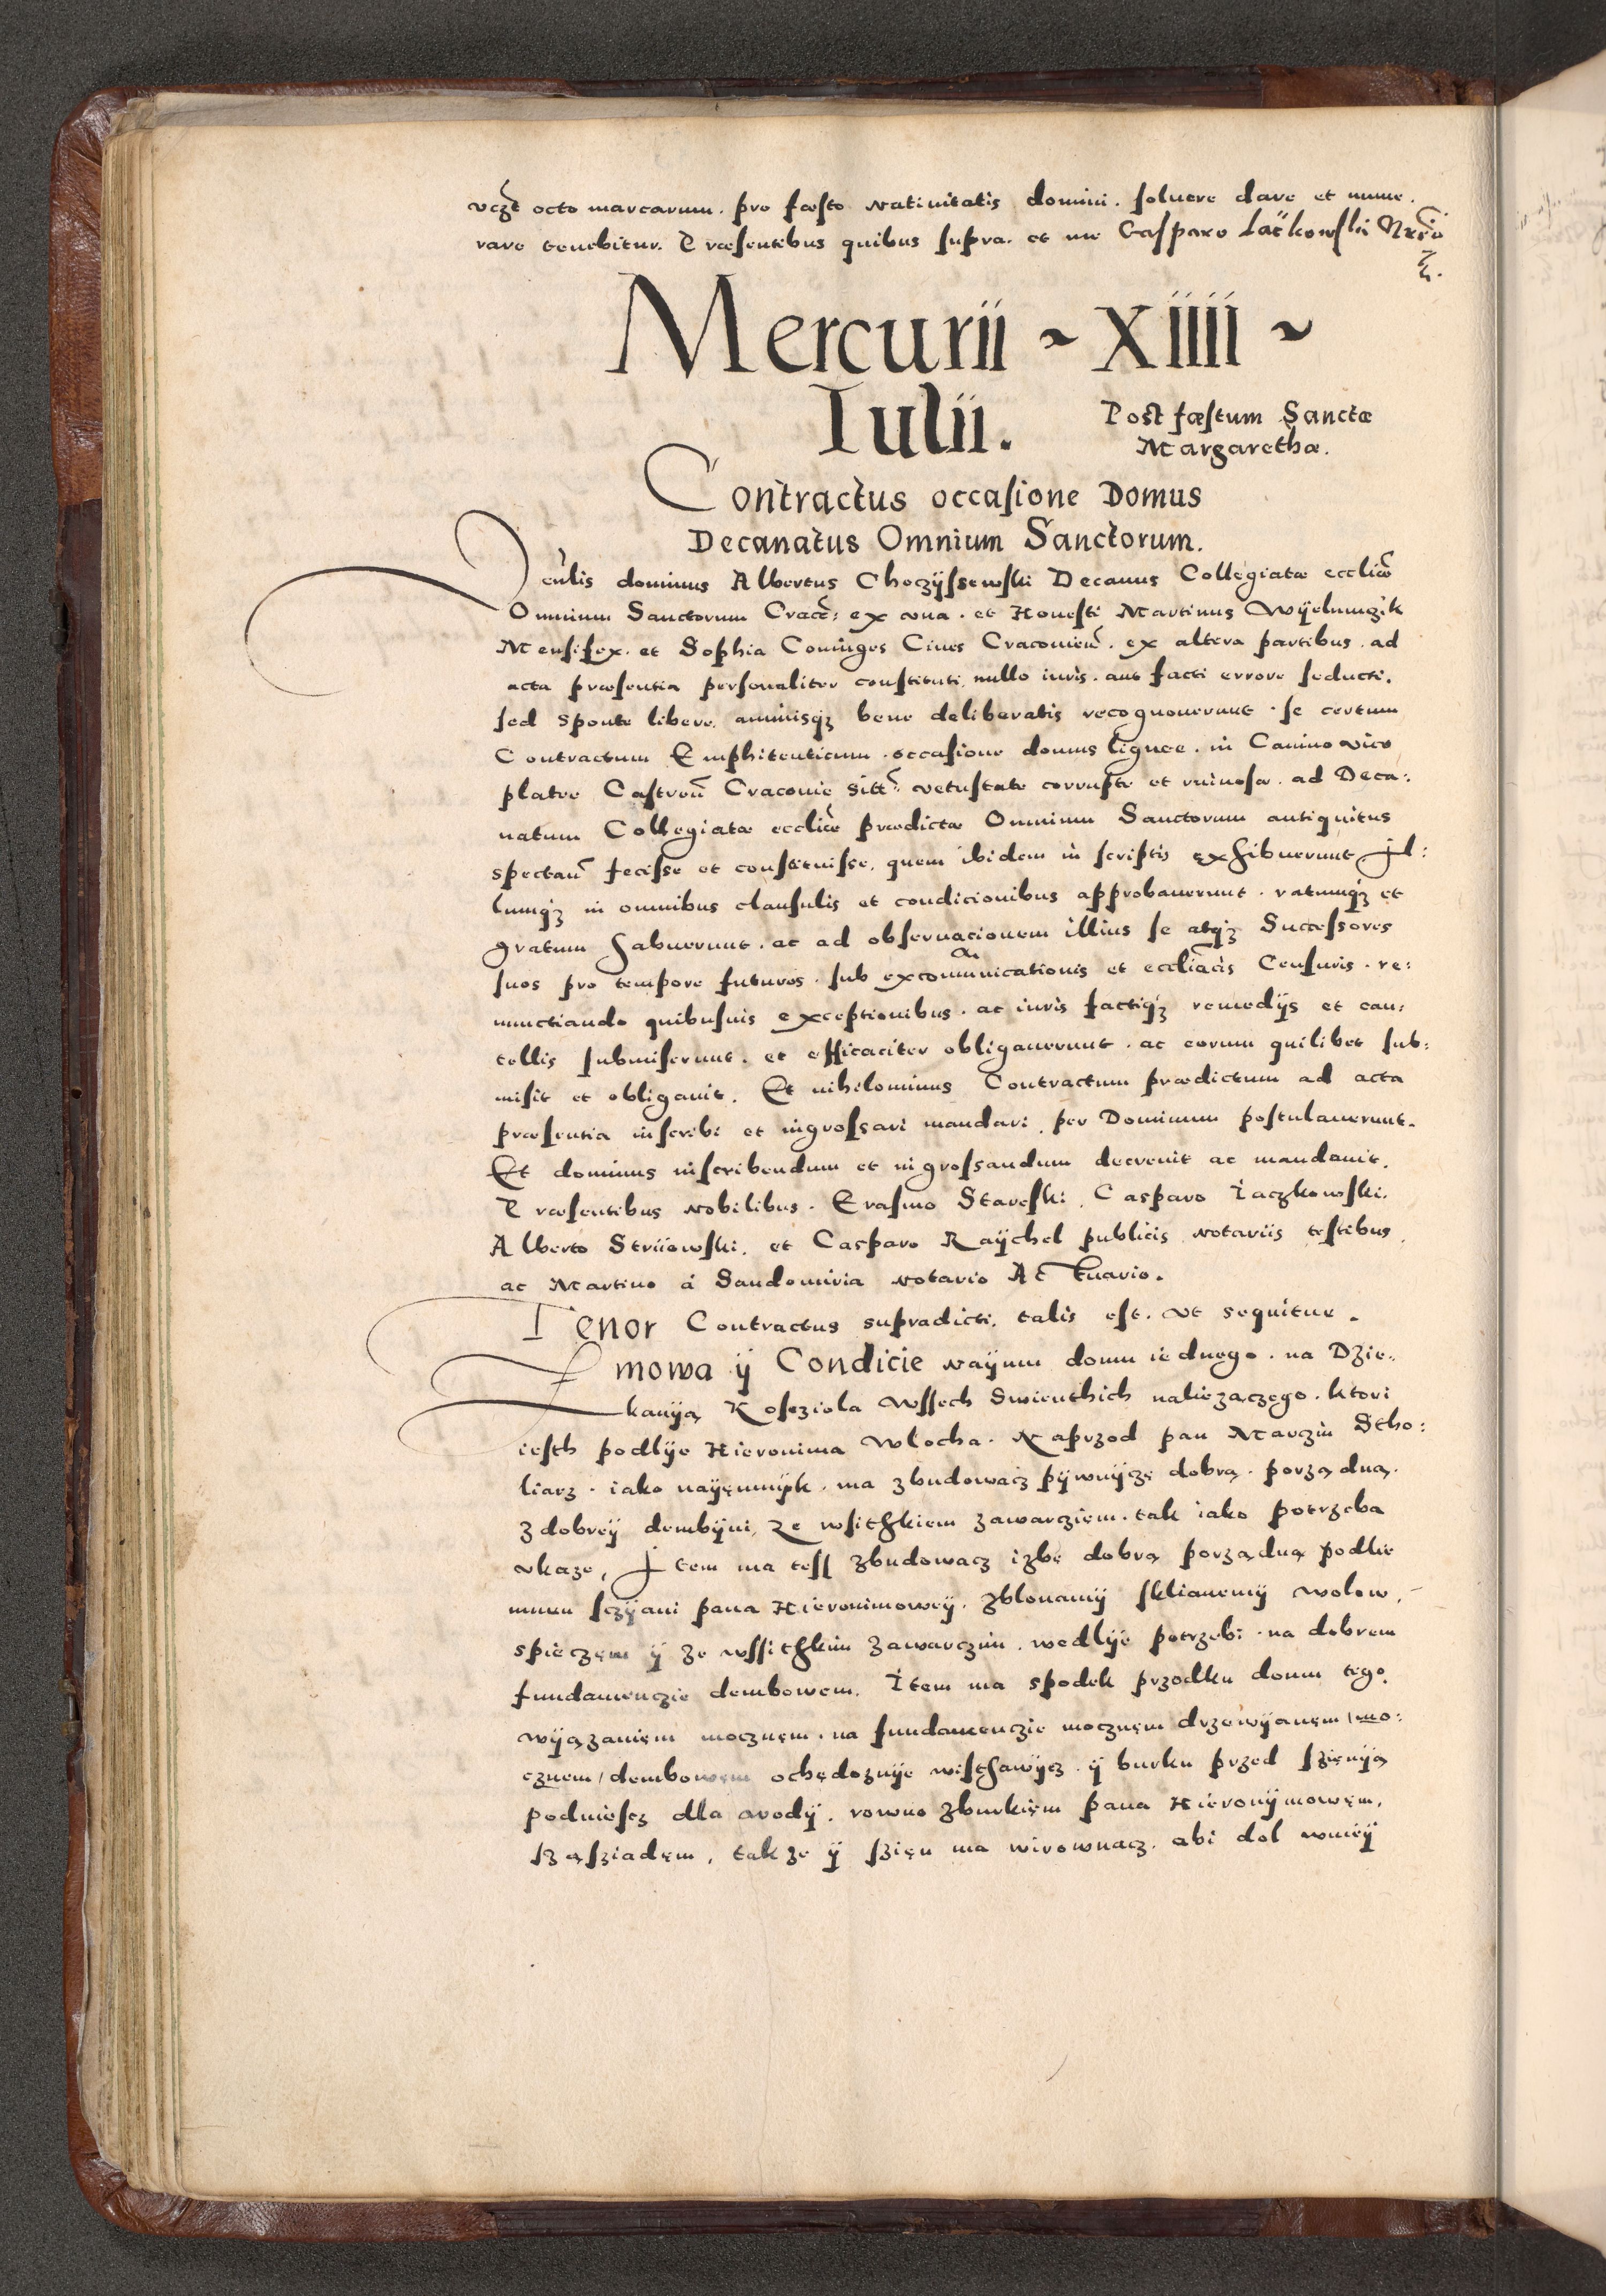 vczt octo marcarum. pro fæsto Nativitatis domini. soluere dare et nume.
rare tenebitur. Præsentibus quibus supra. et me Casparo Laczkowski Nrio
Mercurii ~ Xiiii ~
Iulii.
Post fæstum Sanctæ
Margarethæ.
Contractus occasione Domus
Decanatus Omnium Sanctorum.
Venlis dominus Albertus Choczyssewski Decanus Collegiatæ eccliæ
Omnium Sanctorum Cracē: ex vna. et Honesti Martinus Wyelunczik
Mensifex. et Sophia Coniuges Ciues Cracouien. ex altera partibus. ad
acta præsentia personaliter constituti, nullo iuris. aut facti errore seducti.
sed sponte libere, animisqz bene deliberatis recognouerunt. se certum
Contractum Emphiteuticum. occasione domus lignee. in Canino vico
plateæ Castren Cracouie sitt: vetustate corruptæ et ruinosæ. ad Deca:
natum Collegiatæ eccliæ prædictæ Omnium Sanctorum antiquitus
spectan fecisse et constituisse, quem ibidem in scriptis exhibuerunt Il:
lumqz in omnibus clausulis et condicionibus approbauerunt. ratumqz et
gratum habuerunt. ac ad obseruacionem illius se atqz Successores
suos pro tempore futuros. sub excommunicationis et eccliacis Censuris. re:
nunctiando quibusuis exceptionibus. ac iuris factiqz remedijs et cau:
tellis submiserunt. et efficaciter obligauerunt. ac eorum quilibet sub:
misit et obligauit. Et nihilominus Contractum prædictum ad acta
præsentia inscribi et ingrossari mandari, per Dominum postulauerunt.
Et dominus inscribendum et ingrossandum decreuit ac mandauit.
Præsentibus nobilibus. Erasmo Stareski, Casparo Iaczkowski.
Alberto Strijowski. et Casparo Raÿchel publicis notariis testibus,
ac Martino à Sandomiria notario Actuario.
Tenor Contractus supradicti. talis est. vt sequitur.
Vmowa ÿ Condicie naÿmu domu iednego. na Dzie:
kanÿą Kosczioła Wssech Swienthich nalieżączego. ktori
iesth podlÿe Hieronima Włocha. Naprzod pan Marczin Stho:
liarz. iako naÿęmnÿk. ma zbudowacz pÿwnÿczę dobrą. porządną.
z dobreÿ dembÿni, ze wsithkiem zawarcziem. tak iako potrzeba
vkaze, Item ma tess zbudowacz izbę dobrą porządną podlie
muru sczÿani pana Hieronimoweÿ. zblonamÿ sklianemÿ wolow,
spieczęm ÿ ze wssithkim zawarczim. wedlÿe potrzebi. na dobrem
fundamenczie dembowem. Item ma spodek przodku domu tego.
wÿązanięm mocznęm. na fundamenczie mocznęm drzewÿanęm / mo:
cznem / dembowęm ochędoznÿe wistawÿcz. ÿ burku przed szienÿą
podniescz dla wodÿ. rowno zburkięm pana Hieronÿmowęm.
sząsziadęm, takze ÿ szień ma wirownacz. abi dol wnieÿ